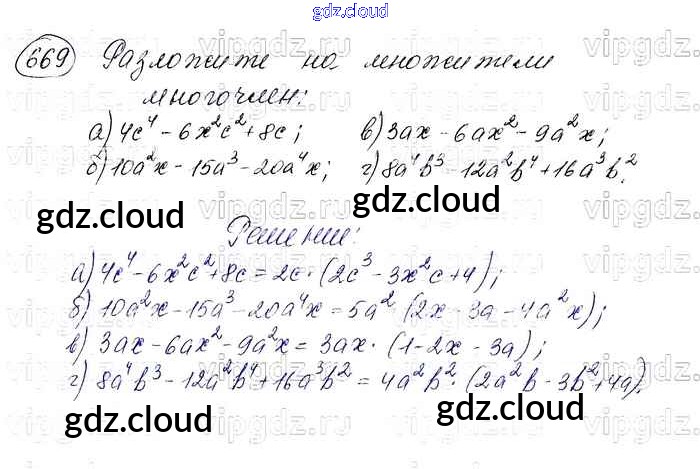 gdz.cloud
669 Разложите на множители
многочлен:
а) 4c⁴ - 6x²c² + 8c; в) 3ax - 6ax² - 9a²x;
б) 10a²x - 15a³ - 20a⁴x; г) 8a⁴b³ - 12a²b⁴ + 16a³b².
gdz.cloud gdz.cloud
Решение:
а) 4c⁴ - 6x²c² + 8c = 2c · (2c³ - 3x²c + 4);
б) 10a²x - 15a³ - 20a⁴x = 5a² (2x - 3a - 4a²x);
в) 3ax - 6ax² - 9a²x = 3ax · (1 - 2x - 3a);
г) 8a⁴b³ - 12a²b⁴ + 16a³b² = 4a²b² · (2a²b - 3b² + 4a).
gdz.cloud gdz.cloud